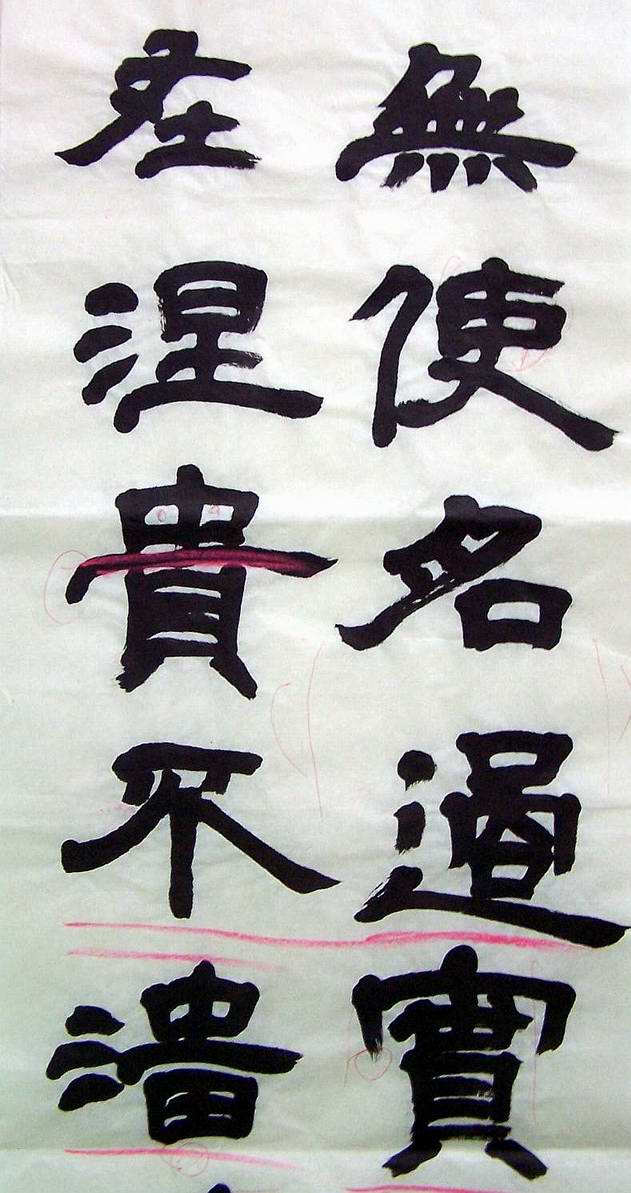 無使名過實
在涅貴不淄